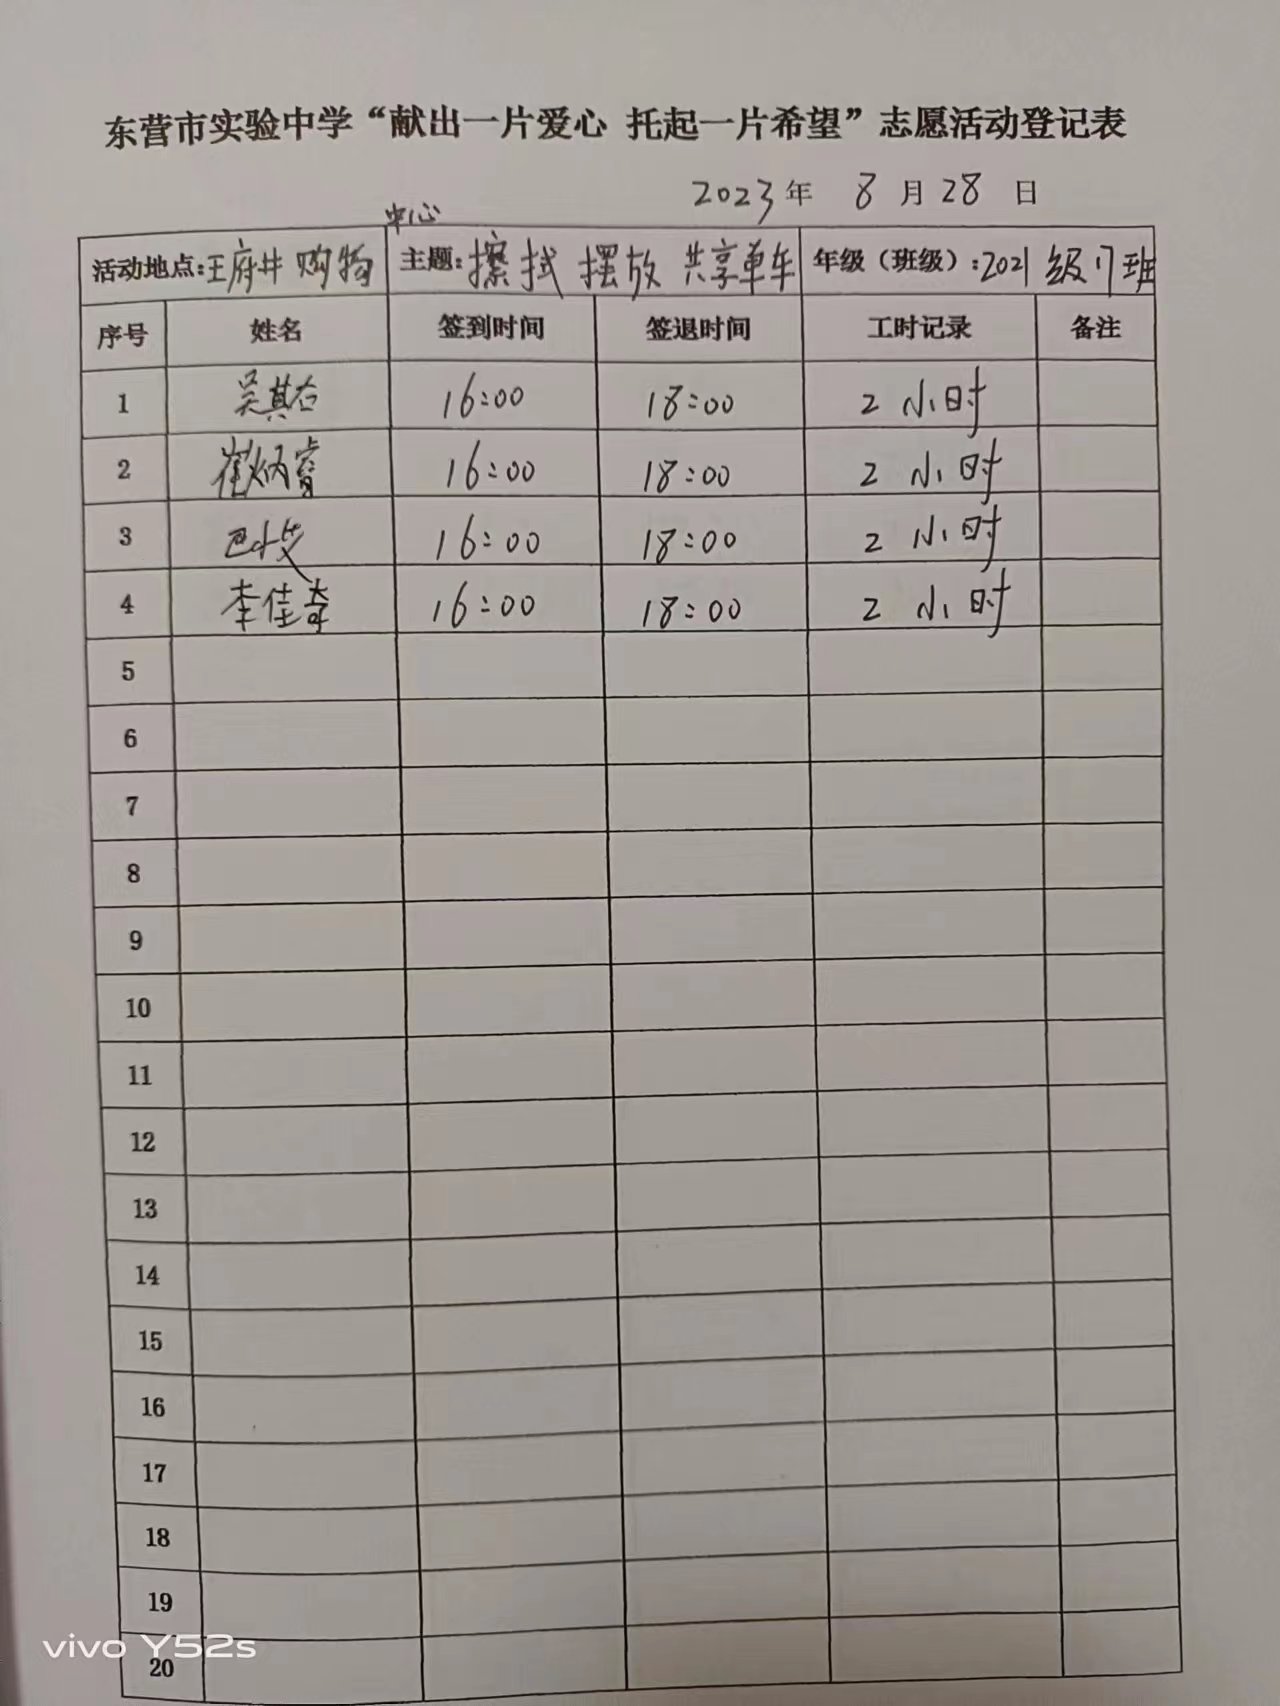 东营市实验中学“献出一片爱心 托起一片希望”志愿活动登记表
2023年 8月28日
中心
活动地点:王府井 购物 主题:擦拭 摆放 共享单车 年级（班级）:2021级17班
序号 姓名 签到时间 签退时间 工时记录 备注
1 吴其右 16:00 18:00 2 小时
2 崔炳睿 16:00 18:00 2 小时
3 16:00 18:00 2 小时
4 李佳奇 16:00 18:00 2 小时
5
6
7
8
9
10
11
12
13
14
15
16
17
18
19
vivo Y52s
20